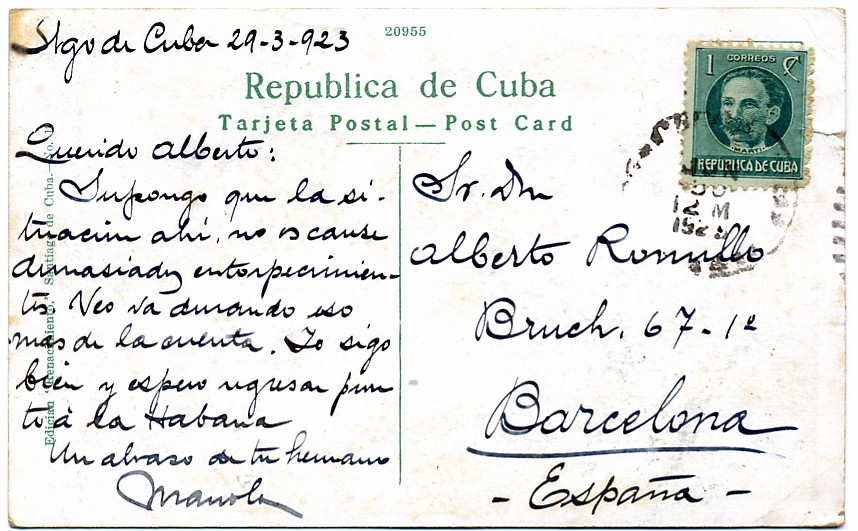 Stgo de Cuba 29-3-923
20955
Republica de Cuba
Tarjeta Postal — Post Card
1 CORREOS C
MARTI
REPUBLICA DE CUBA
12 M
1923
Edición "Renacimiento," Santiago de Cuba.—No.
Querido Alberto:
Supongo que la si-
tuación ahí, no os cause
demasiados entorpecimien-
tos. Veo va durando eso
mas de la cuenta. Yo sigo
bien y espero regresar pron
to à la Habana
Un abraso de tu hermano
Manolo
Sr. Dn
Alberto Romillo
Bruch. 67-1º
Barcelona
- España -